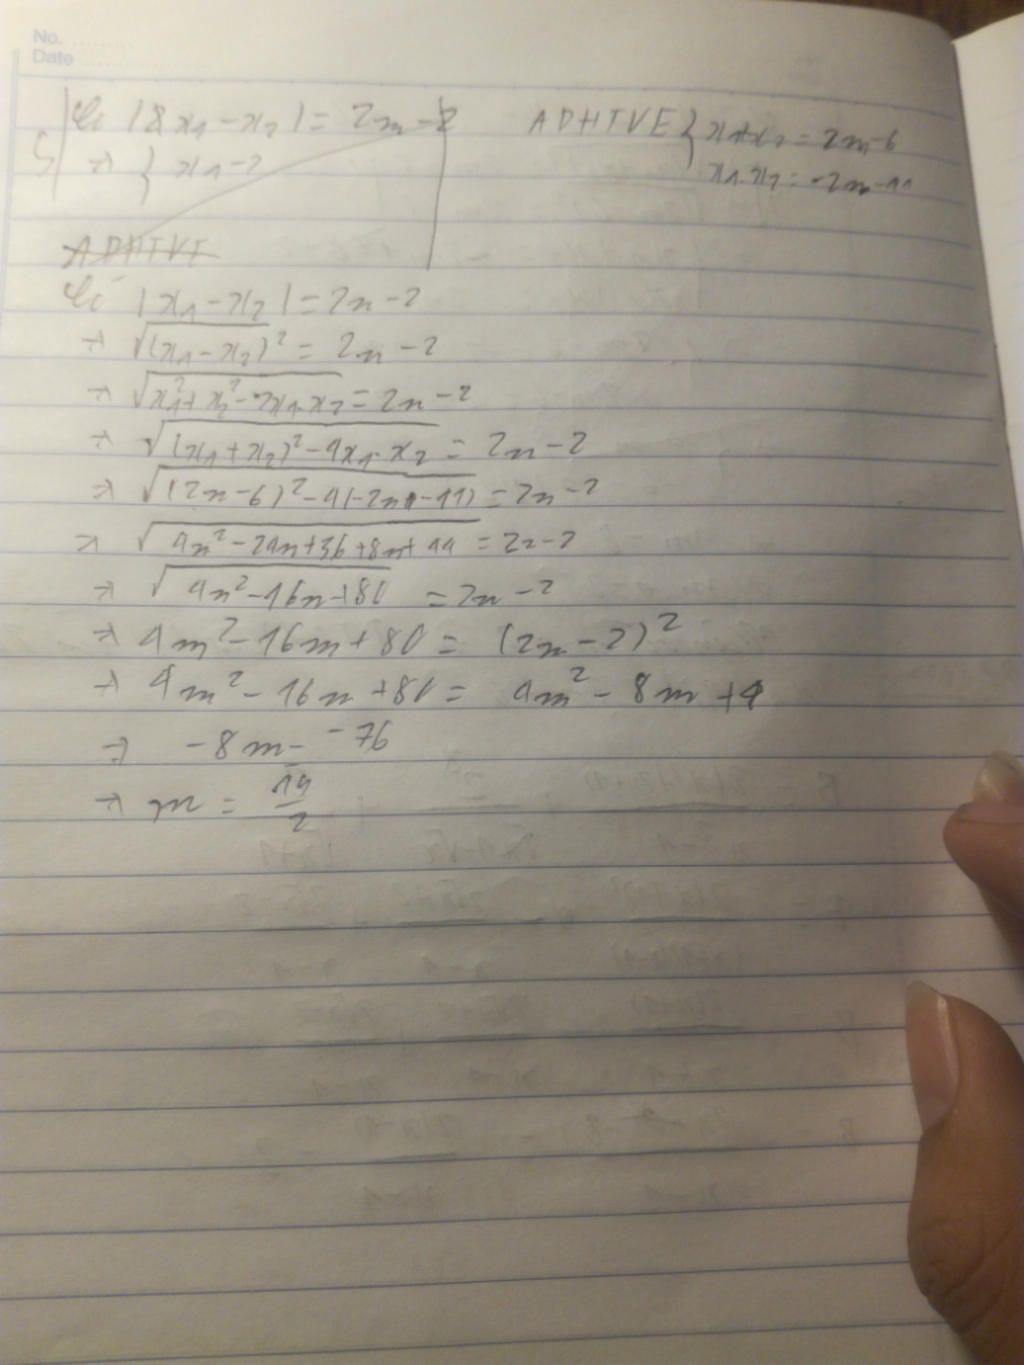 No.
Date
5) Có |8x₁ - x₂| = 2m - 2
=> { x₁ - 2
ADHTVE { x₁ + x₂ = 2m - 6
x₁.x₂ = -2m - 11
ADHTVE
Có |x₁ - x₂| = 2m - 2
=> √(x₁ - x₂)² = 2m - 2
=> √x₁² + x₂² - 2x₁.x₂ = 2m - 2
=> √(x₁ + x₂)² - 4x₁.x₂ = 2m - 2
=> √(2m - 6)² - 4(-2m - 11) = 2m - 2
=> √4m² - 24m + 36 + 8m + 44 = 2m - 2
=> √4m² - 16m + 80 = 2m - 2
=> 4m² - 16m + 80 = (2m - 2)²
=> 4m² - 16m + 80 = 4m² - 8m + 4
=> -8m = -76
=> m = 19/2